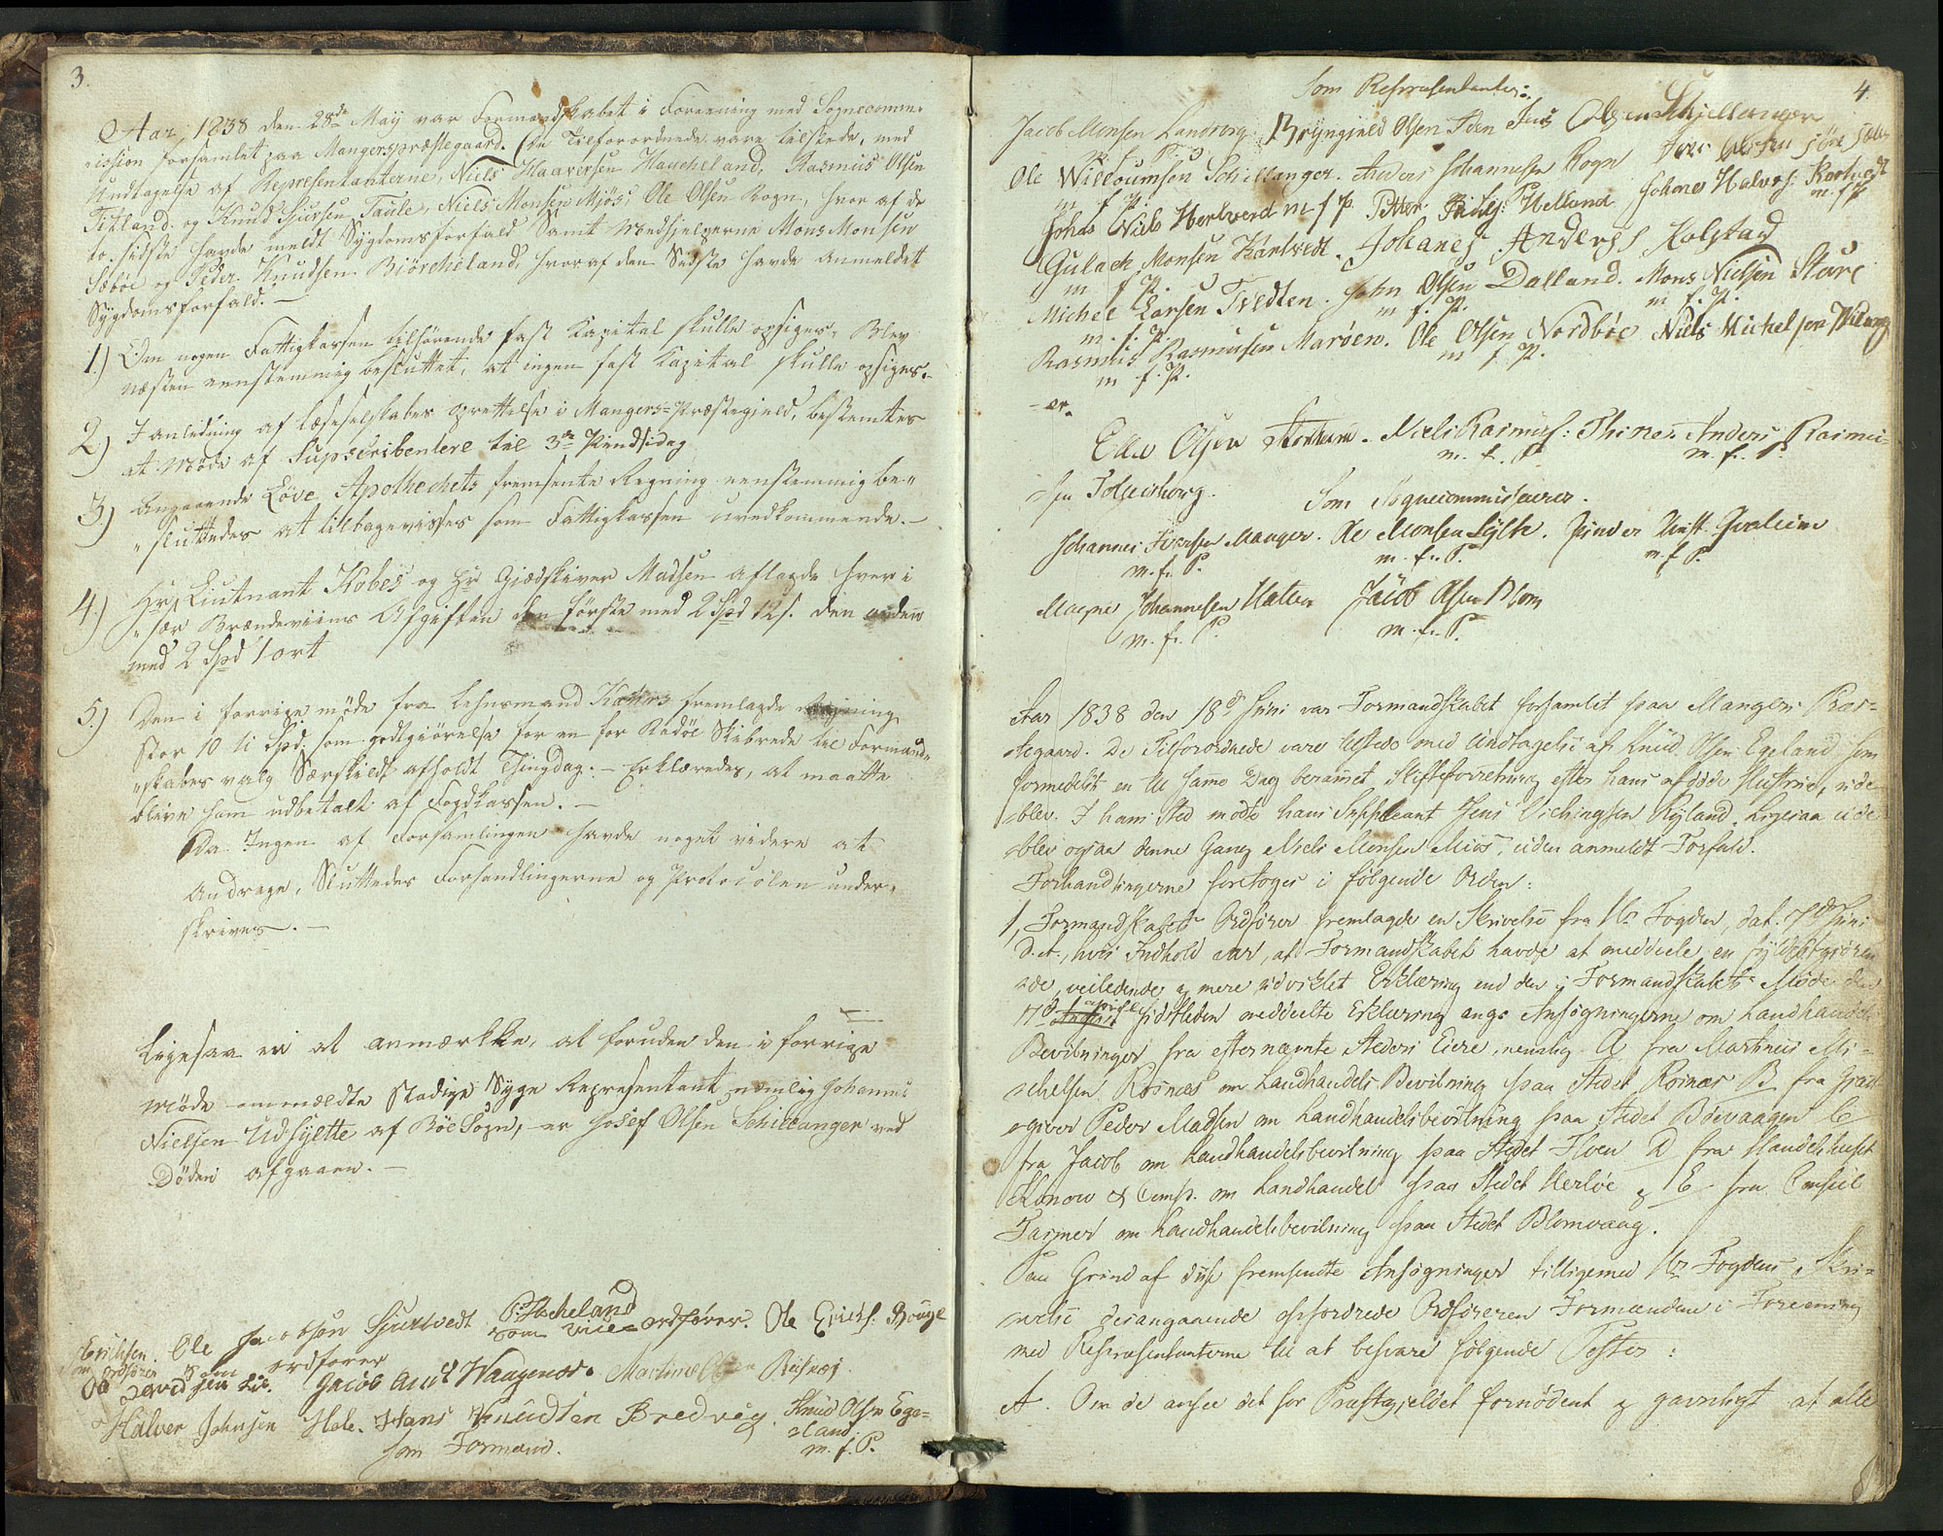 3.
Aar, 1838 den 28de Maÿ var Formandskabet i Foreening med Sognecomm-
ission forsamlet paa Mangerspræstegaard. De Tilforordnede vare tilstede, med
Undtagelse af Representanterne, Niels Haaversen Haucheland, Rasmus Olsen
Titland, og Knud Sjursen Taule, Niels Monsen Mjøs, Ole Olsen Rogn, hvor af de
to sidste havde meldt Sygdomsforfald Samt Medhjelperne Mons Monsen
Sæbøe og Peder Knudsen Biörcheland, hvoraf den Sidste havde anmeldt
Sygdomsforfald. —
1.) Om nogen Fattigkassen tilhørende fast Kapital skulle opsiges, Blev
næsten eenstemmig besluttet, at ingen fast Kapital skulle opsiges.
2) I anledning af læseselskabes oprettelse i Mangers-Præstegjeld, bestemtes
at Møde af Supscribentere til 3die Pindsedag
3) Angaaende Løve Apothechets fremsente Regning eenstemmig be-
sluttedes at tilbagevisses som Fattigkassen uvedkommende. —
4.) Hr. Liutnant Kobes og Hr Giædskiver Madsen aflagde hver i
sær Brændeviins Afgiften den første med 2 Spd 12 s. den anden
med 2 Spd 1 ort
5.) Den i forrige møde fra Lehnsmand fremlagde Regning
stor 10 ti Spd, som godtgiörelse for en for Radöe Skibrede til Formand-
skabes valg Særskildt afholdt Thingdag. — Erklæredes, at maatte
blive ham udbetalt af Fogdkassen. —
Da Ingen af Forsamlingen havde noget videre at
Andrage, Sluttedes Forhandlingerne og Protocolen under-
skrives. —
Ligesaa er at anmærkke, at foruden den i forrige
Møde anmeldte stadige Syge Representant nemlig Johannes
Nielsen Udsylte af Böe Sogn, er Josef Olsen Schillanger ved
Døden afgaaen. —
Erichsen. Ole Jacobsen Sjurtvedt P. Hocheland Ole Erichs. Bouge
som ordfører som vice-ordfører.
Jacob And Waagenes. Martinus Olsen Reisnæs
Halver Johnsen Hole. Hans Knudsen Bredvig. Knud Olsen Ege-
land.
som Formænd. m. f. P.
4.
Som Repræsentanter:
Jacob Monsen Landroug. Bryngield Olsen Jens Olsen Schjellanger
Ole Willoumsen Schillanger. Anders Johannesen Rogn
m. f. P.
Johas Niels Hertverd m f P. Petter Helland Johanes Halvors. Kortvedt
m. f. P
Gulack Monsen Hantvedt. Johanes Anderss Kolstad
m f P.
Michel Larsen Tvedten. John Olsen Dalland. Mons Nielsen Støre
m. f. P. m f. P. m f. P.
Rasmus Rasmusen Marøen. Ole Olsen Nordbøe Niels Michelsen
m f. P. m f. P.
Elias Olsen. Niels Rasmus: Thines. Anders Rasmu-
m. f. P. m. f. P.
sen Toskeshoug. Som Sognecommissairer.
Johannes Iversen Manger. Ole Monsen Sylte. Kvaleim
m. f. P. m. f. P. m. f. P.
Magne Johannesen Hatten Jacob Olsen Blom
m. f. P. m. f. P.
Aar 1838 den 18de Juni var Formandskabet forsamlet paa Mangers Præs-
tegaard. De Tilforordnede vare tilstede med Undtagelse af Knud Olsen Egeland som
formedelst en til samme Dag berammet Skifteforretning efter hans afdøde Hustrue, ude-
blev. I hans Sted mødte hans Suppleant Jens Vichingsen Ryland. Ligesaa ude-
blev ogsaa denne Gang Niels Monsen Miøs, uden anmeldt Forfald.
Forhandlingerne foretoges i følgende Orden:
1, Formandskabets Ordfører fremlagde en Skrivelse fra Hr Fogden, dat. 7de Juni
D. A., hvis Indhold var, at Formandskabet havde at meddeele en fyldestgiøren-
de, veiledende og mere udviklet Erklæring end den i Formandskabets Møde den
17de april sidstleden meddeelte Erklæring angs Ansøgningerne om Landhandels
Bevilninger fra efternævnte Steders Eiere, nemlig A fra Martinus Mi-
chelsen Rosnæs om Landhandels Bevilning paa Stedet Rosnæs B fra Giæst-
giver Peder Madsen om Landhandelsbevilning paa Stedet Bøevaagen C
fra Jacob om Landhandelsbevilning paa Stedet Floen D fra Handelshuset
Konow & Comp. om Landhandel paa Stedet Herløe og E fra Consul
Fasmer om Landhandelsbevilning paa Stedet Blomvaag.
Paa Grund af disse fremsendte Ansøgninger tilligemed Hr Fogdens Skri-
velse desangaaende opfordrede Ordføreren Formændene i Foreening
med Repræsentanterne til at besvare følgende Poster:
A. Om de ansee det for Præstegieldet fornødent og gavnligt at alle